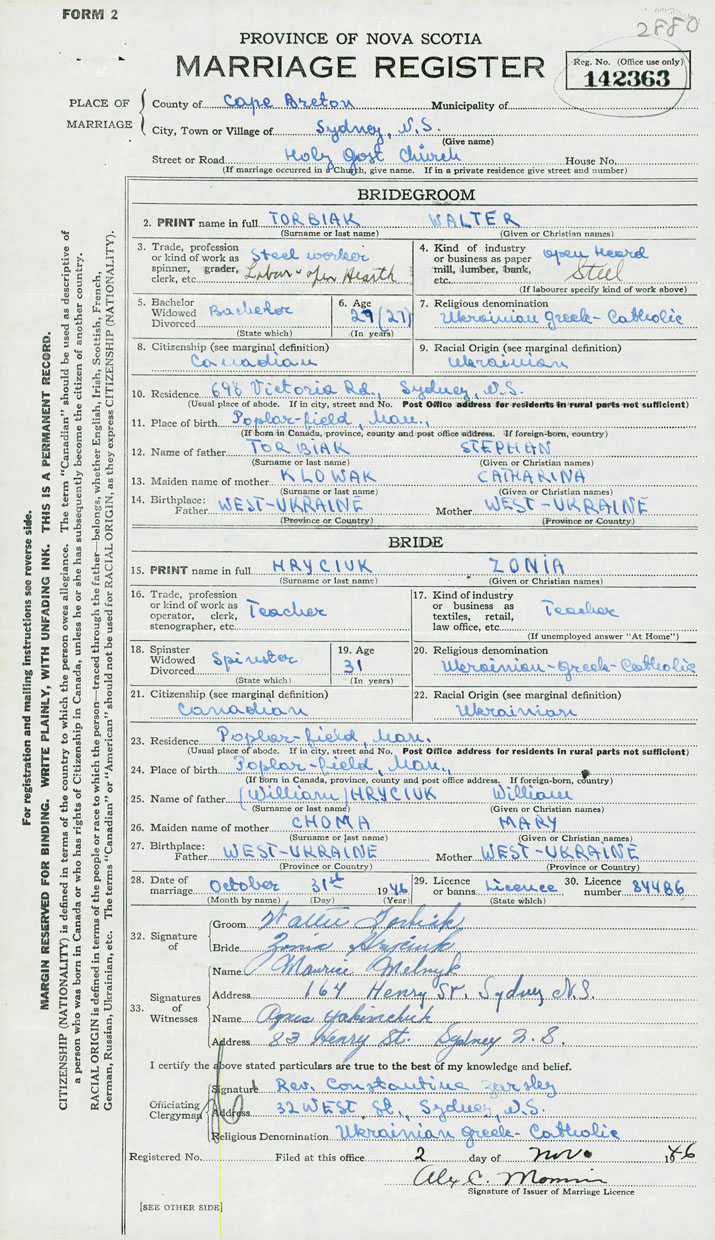 FORM 2
2880
PROVINCE OF NOVA SCOTIA
MARRIAGE REGISTER
Reg. No. (Office use only)
142363
PLACE OF MARRIAGE
County of Cape Breton Municipality of
City, Town or Village of Sydney, N.S.
(Give name)
Street or Road Holy Gost Church House No.
(If marriage occurred in a Church, give name. If in a private residence give street and number)
BRIDEGROOM
2. PRINT name in full TORBIAK WALTER
(Surname or last name) (Given or Christian names)
3. Trade, profession or kind of work as spinner, grader, clerk, etc. Steel worker
Labor - open Hearth
4. Kind of industry or business as paper mill, lumber, bank, etc. open Heard
Steel
(If labourer specify kind of work above)
5. Bachelor Widowed Divorced Bachelor
(State which)
6. Age 29 (27)
(In years)
7. Religious denomination
Ukrainian Greek-Catholic
8. Citizenship (see marginal definition)
Canadian
9. Racial Origin (see marginal definition)
Ukrainian
10. Residence 698 Victoria Rd., Sydney, N.S.
(Usual place of abode. If in city, street and No. Post Office address for residents in rural parts not sufficient)
11. Place of birth Poplar-field, Man.,
(If born in Canada, province, county and post office address. If foreign-born, country)
12. Name of father TORBIAK STEPHAN
(Surname or last name) (Given or Christian names)
13. Maiden name of mother KLOWAK CATHARINA
(Surname or last name) (Given or Christian names)
14. Birthplace: Father WEST-UKRAINE Mother WEST-UKRAINE
(Province or Country) (Province or Country)
BRIDE
15. PRINT name in full HRYCIUK ZONIA
(Surname or last name) (Given or Christian names)
16. Trade, profession or kind of work as operator, clerk, stenographer, etc. Teacher
17. Kind of industry or business as textiles, retail, law office, etc. Teacher
(If unemployed answer "At Home")
18. Spinster Widowed Divorced Spinster
(State which)
19. Age 31
(In years)
20. Religious denomination
Ukrainian-Greek-Catholic
21. Citizenship (see marginal definition)
Canadian
22. Racial Origin (see marginal definition)
Ukrainian
23. Residence Poplar-field, Man.
(Usual place of abode. If in city, street and No. Post Office address for residents in rural parts not sufficient)
24. Place of birth Poplar-field, Man.,
(If born in Canada, province, county and post office address. If foreign-born, country)
25. Name of father (William) HRYCIUK William
(Surname or last name) (Given or Christian names)
26. Maiden name of mother CHOMA MARY
(Surname or last name) (Given or Christian names)
27. Birthplace: Father WEST-UKRAINE Mother WEST-UKRAINE
(Province or Country) (Province or Country)
28. Date of marriage October 31st 1946
(Month by name) (Day) (Year)
29. Licence or banns Licence
(State which)
30. Licence number 84486
32. Signature of
Groom Walter Torbiak
Bride Zonia Hryciuk
33. Signatures of Witnesses
Name Maurice Melnyk
Address 164 Henry St. Sydney N.S.
Name Agnes Yakimchuk
Address 83 Henry St. Sydney N.S.
I certify the above stated particulars are true to the best of my knowledge and belief.
Officiating Clergyman
Signature Rev. Constantine
Address 32 WEST St., Sydney, N.S.
Religious Denomination Ukrainian Greek-Catholic
Registered No. Filed at this office 2 day of Nov. 1946
Alex C.
Signature of Issuer of Marriage Licence
[SEE OTHER SIDE]
For registration and mailing instructions see reverse side.
MARGIN RESERVED FOR BINDING. WRITE PLAINLY, WITH UNFADING INK. THIS IS A PERMANENT RECORD.
CITIZENSHIP (NATIONALITY) is defined in terms of the country to which the person owes allegiance. The term "Canadian" should be used as descriptive of
a person who was born in Canada or who has rights of Citizenship in Canada, unless he or she has subsequently become the citizen of another country.
RACIAL ORIGIN is defined in terms of the people or race to which the person—traced through the father—belongs, whether English, Irish, Scottish, French,
German, Russian, Ukrainian, etc. The terms "Canadian" or "American" should not be used for RACIAL ORIGIN, as they express CITIZENSHIP (NATIONALITY).